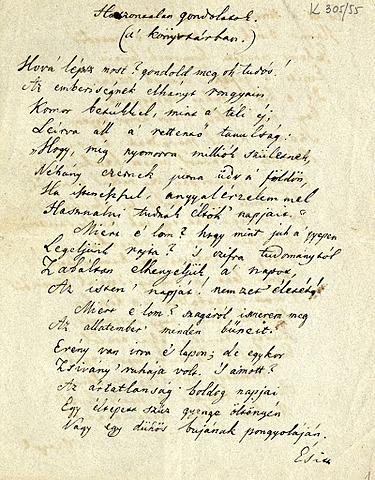 K 305/55
Haszontalan gondolatok.
(A' könyvtárban.)
Hová lépsz most? gondold meg oh tudós!
Az emberiségnek elhányt rongyain
Komor betűkkel, mint a' téli éj,
Leírva áll a' rettentő tanulság:
„Hogy, míg nyomorra milliók születnek,
Néhány ezernek jutna üdv a' földön,
Ha istenésszel, angyalérzelemmel
Használni tudnák éltök' napjait.“
Miért e' lom? hogy mint juh a' gyepen
Legeljünk rajta? 's czifra tudománytól
Zabáltan elhengeljük a' napot,
Az isten' napját! nemzet életét!
Miért e' lom? szagáról ismerem meg
Az állatember minden bűneit.
Erény van írva e' lapon; de egykor
Zsivány' ruhája volt. 'S amott?
Az ártatlanság boldog napjai
Egy eltépett szűz gyenge öltönyén
Vagy egy dühös bujának pongyoláján.
És itt
1